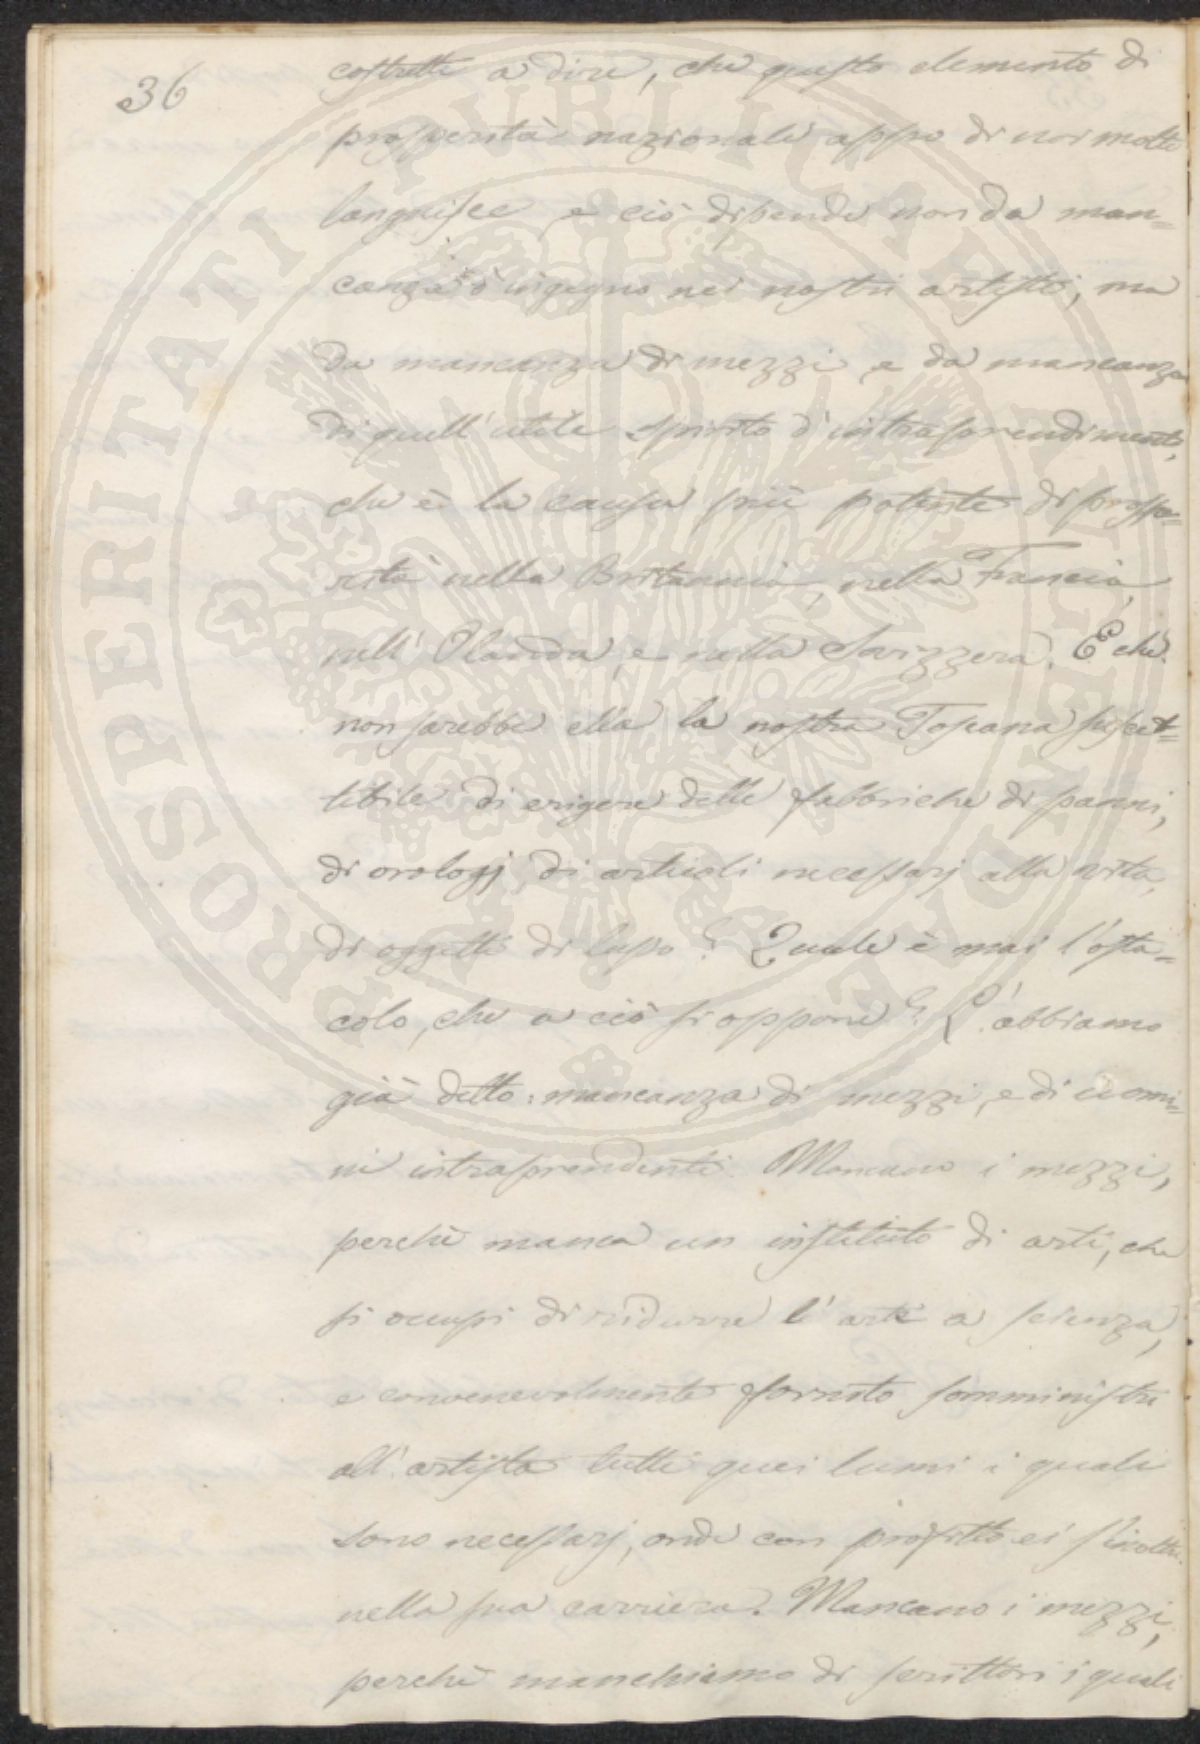 36
costretti a dire, che questo elemento di
prosperità nazionale appo di noi molto
languisce, e ciò dipende non da man=
canza d'ingegno nei nostri artisti, ma
da mancanza di mezzi, e da mancanza
di quell'utile spirito d'intraprendimento,
che è la causa più potente di prospe=
rità nella Britannia, nella Francia,
nell'Olanda, e nella Svizzera. E che!
non sarebbe ella la nostra Toscana suscet=
tibile di erigere delle fabbriche di panni,
di orologj, di articoli necessarj alla vita,
di oggetti di lusso? Quale è mai l'osta=
colo, che a ciò si oppone? L'abbiamo
già detto: mancanza di mezzi, e di uomi=
ni intraprendenti. Mancano i mezzi,
perchè manca un instituto di arti, che
si occupi di ridurre l'arte a scienza,
e convenevolmente fornito somministri
all'artista tutti quei lumi i quali
sono necessarj, onde con profitto ei s'inoltri
nella sua carriera. Mancano i mezzi,
perchè manchiamo di scrittori i quali
PROSPERITATI PUBLICAE AUGENDAE